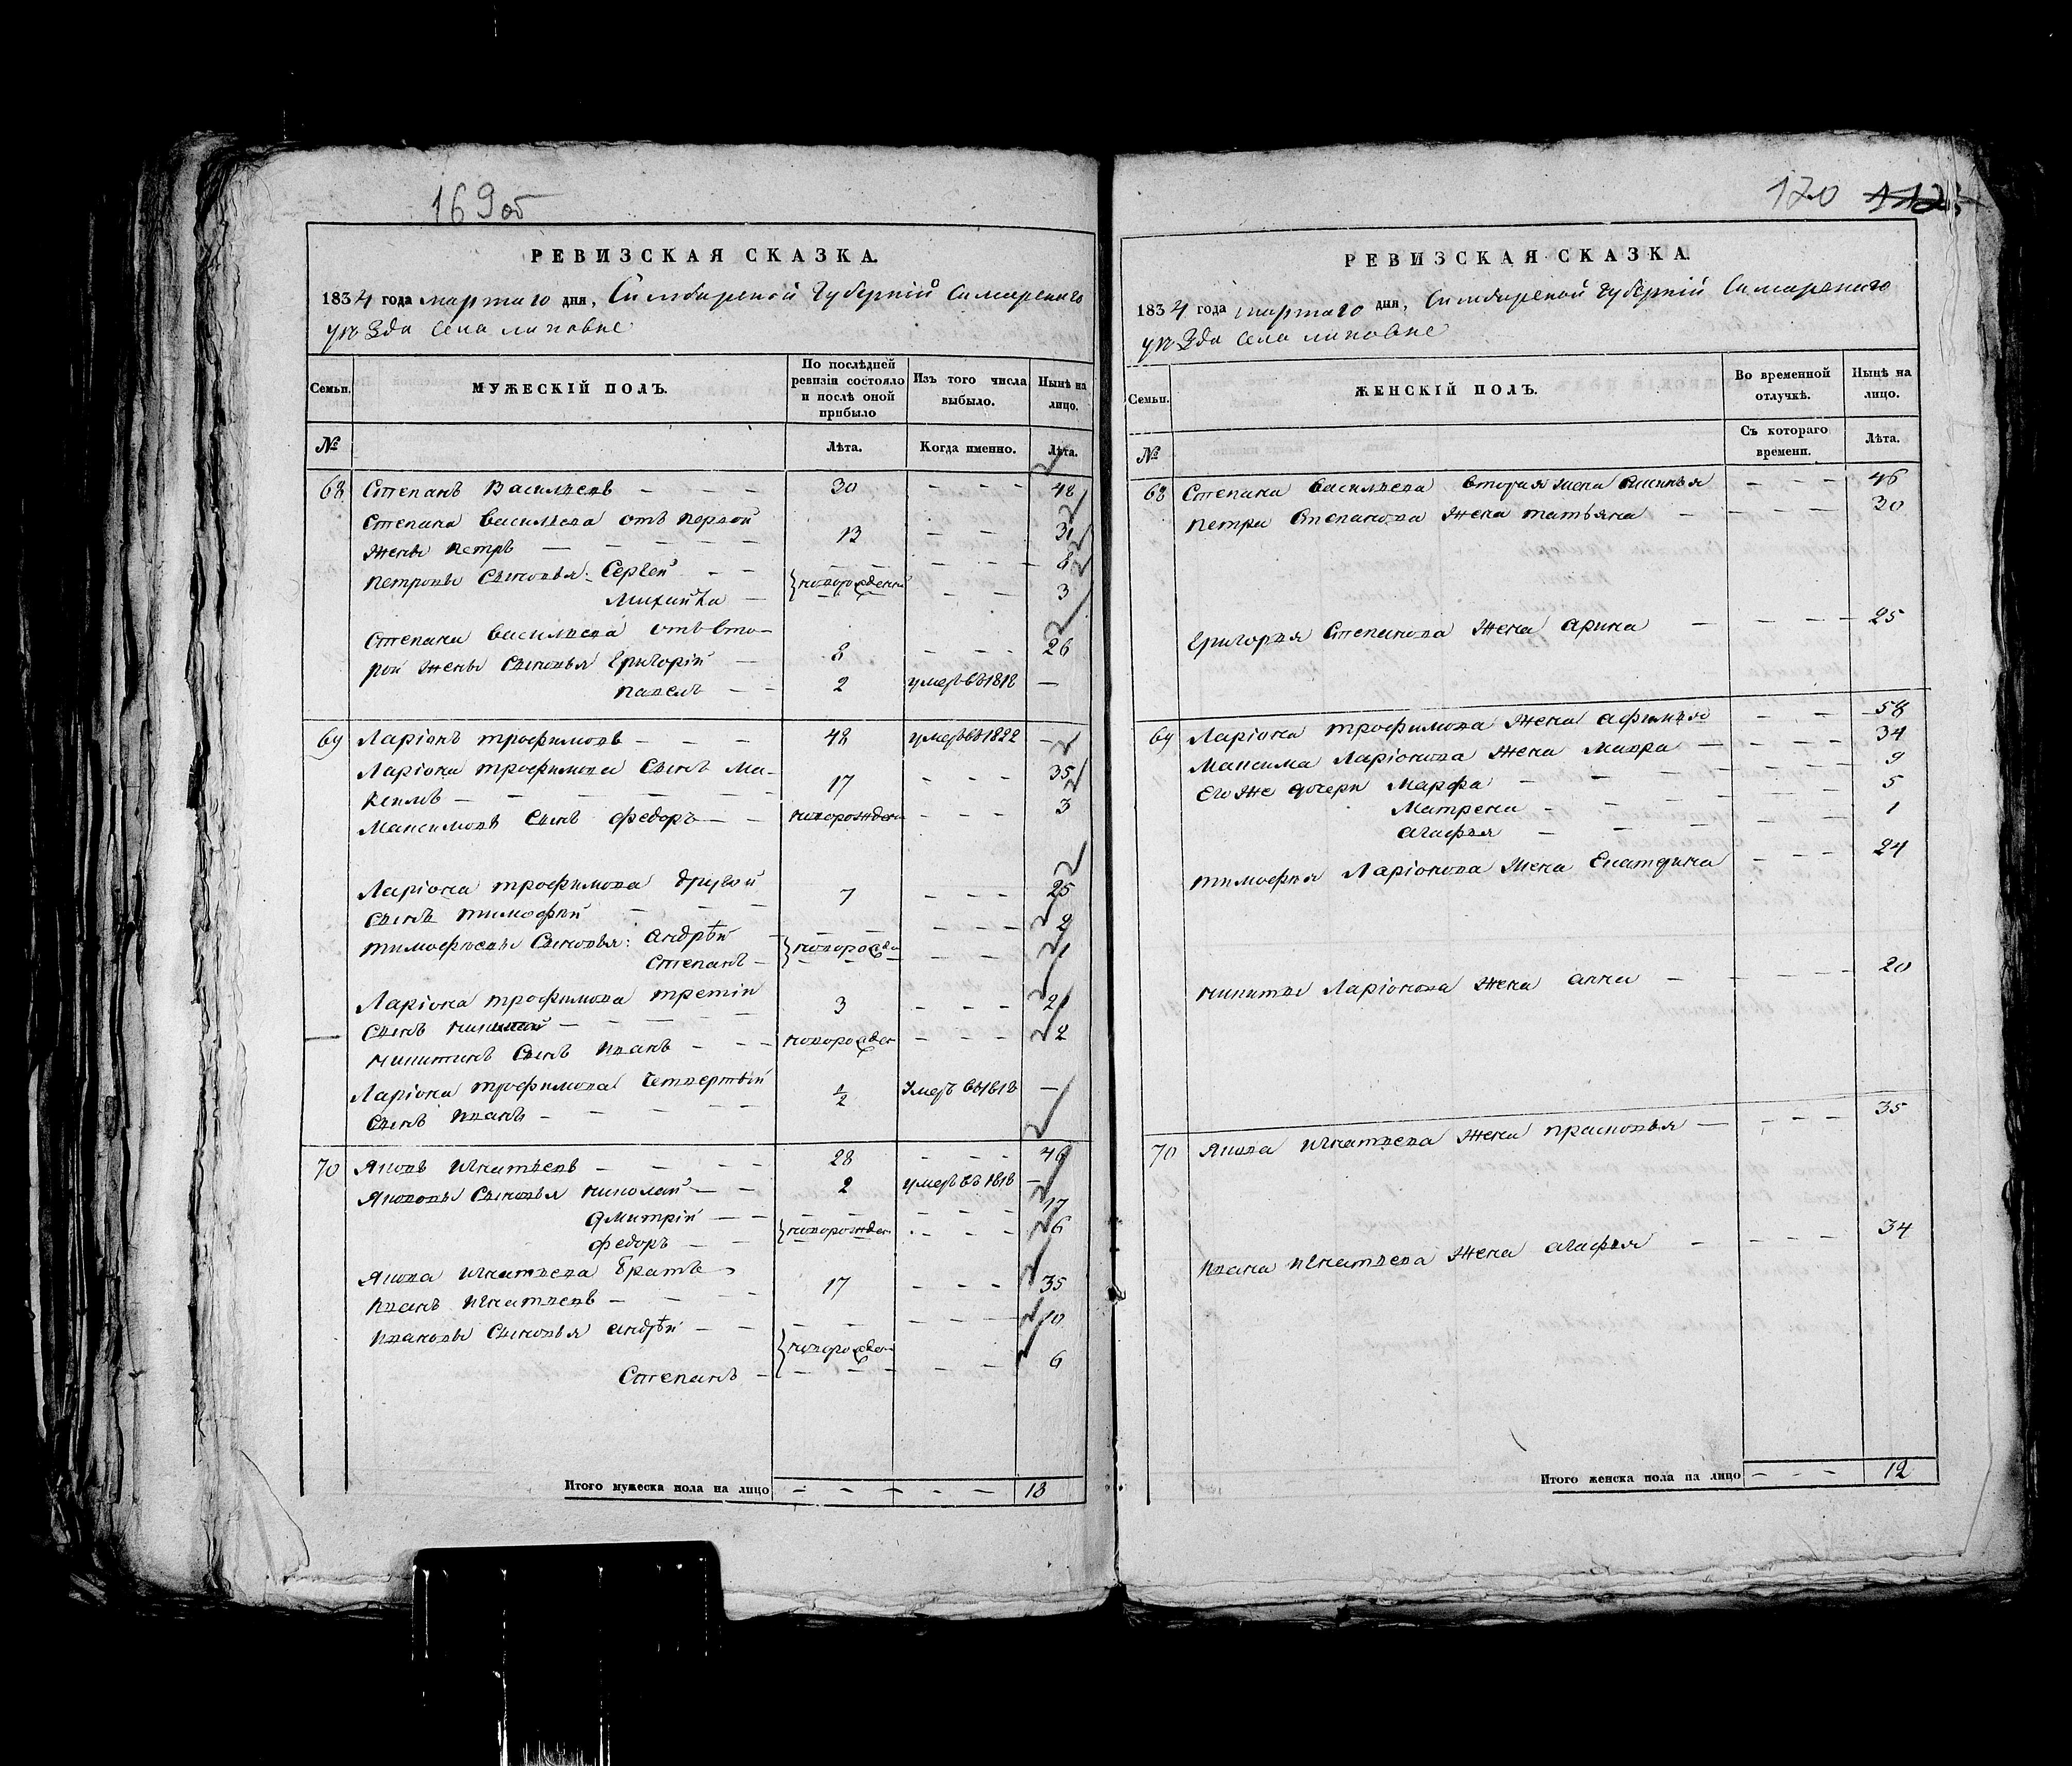 169об
РЕВИЗСКАЯ СКАЗКА.
1834 года марта 10 дня, Симбирской Губерніи Самарскаго
уѣзда села липовке
Семьи. МУЖЕСКІЙ ПОЛЪ. По послѣдней ревизіи состояло и послѣ оной прибыло Изъ того числа выбыло. Нынѣ на лицо.
№ Лѣта. Когда именно. Лѣта.
68 Степанъ Васильевъ — — — 30 — — — 48
Степана Васильева отъ первой
жены петръ — — — — — 13 — — 31
петровы сыновья: Сергей — — новорожденны — — — 8
Михайла — — — — 3
Степана васильева отъ вто-
рой жены сыновья григорій — 8 — — — 26
павелъ — — 2 умеръ въ 1818 —
69 Ларіонъ трофимовъ — — — 48 умеръ въ 1822 —
Ларіона трофимова сынъ Ма-
ксимъ — — — — — — 17 — — — 35
Максимовъ сынъ федоръ — — новорожден — — — 3
Ларіона трофимова другой
сынъ тимофѣй — — — 7 — — — 25
тимофѣевы сыновья: андрѣй — новорожде — — — 2
степанъ — — — — 1
Ларіона трофимова третій
сынъ никита — — — — 3 — — — 21
никитинъ сынъ иванъ — — — новорожден — — — 2
Ларіона трофимова четвертый
сынъ иванъ — — — — — ½ умеръ въ 1818 —
70 Яковъ игнатьевъ — — — — 28 — — — 46
Якововы сыновья николай — — 2 умеръ въ 1818 —
дмитрій — — новорожден — — — 17
федоръ — — — — — 6
Якова игнатьева братъ
иванъ игнатьевъ — — — 17 — — — 35
ивановы сыновья андрѣй — — новорожден — — — 10
Степанъ — — — 6
Итого мужеска пола на лицо — — — — — — 18
170
РЕВИЗСКАЯ СКАЗКА.
1834 года марта 10 дня, Симбирской Губерніи Самарскаго
уѣзда села липовке
Семьи. ЖЕНСКІЙ ПОЛЪ. Во временной отлучкѣ. Нынѣ на лицо.
№ Съ котораго времени. Лѣта.
68 Степана васильева вторая жена — — — 46
петра степанова жена татьяна — — — — 30
григорья степанова жена арина — — — — 25
69 Ларіона трофимова жена афимья — — 58
Максима Ларіонова жена Мавра — — — — 34
Его же дочери Марфа — — — — — 9
Матрена — — — — — 5
агафья — — — 1
тимофѣя Ларіонова жена Екатерина — — — 24
никиты Ларіонова жена анна — — — — — 20
70 Якова игнатьева жена прасковья — — — — 35
ивана игнатьева жена агафья — — — — 34
Итого женска пола на лицо — — — 12